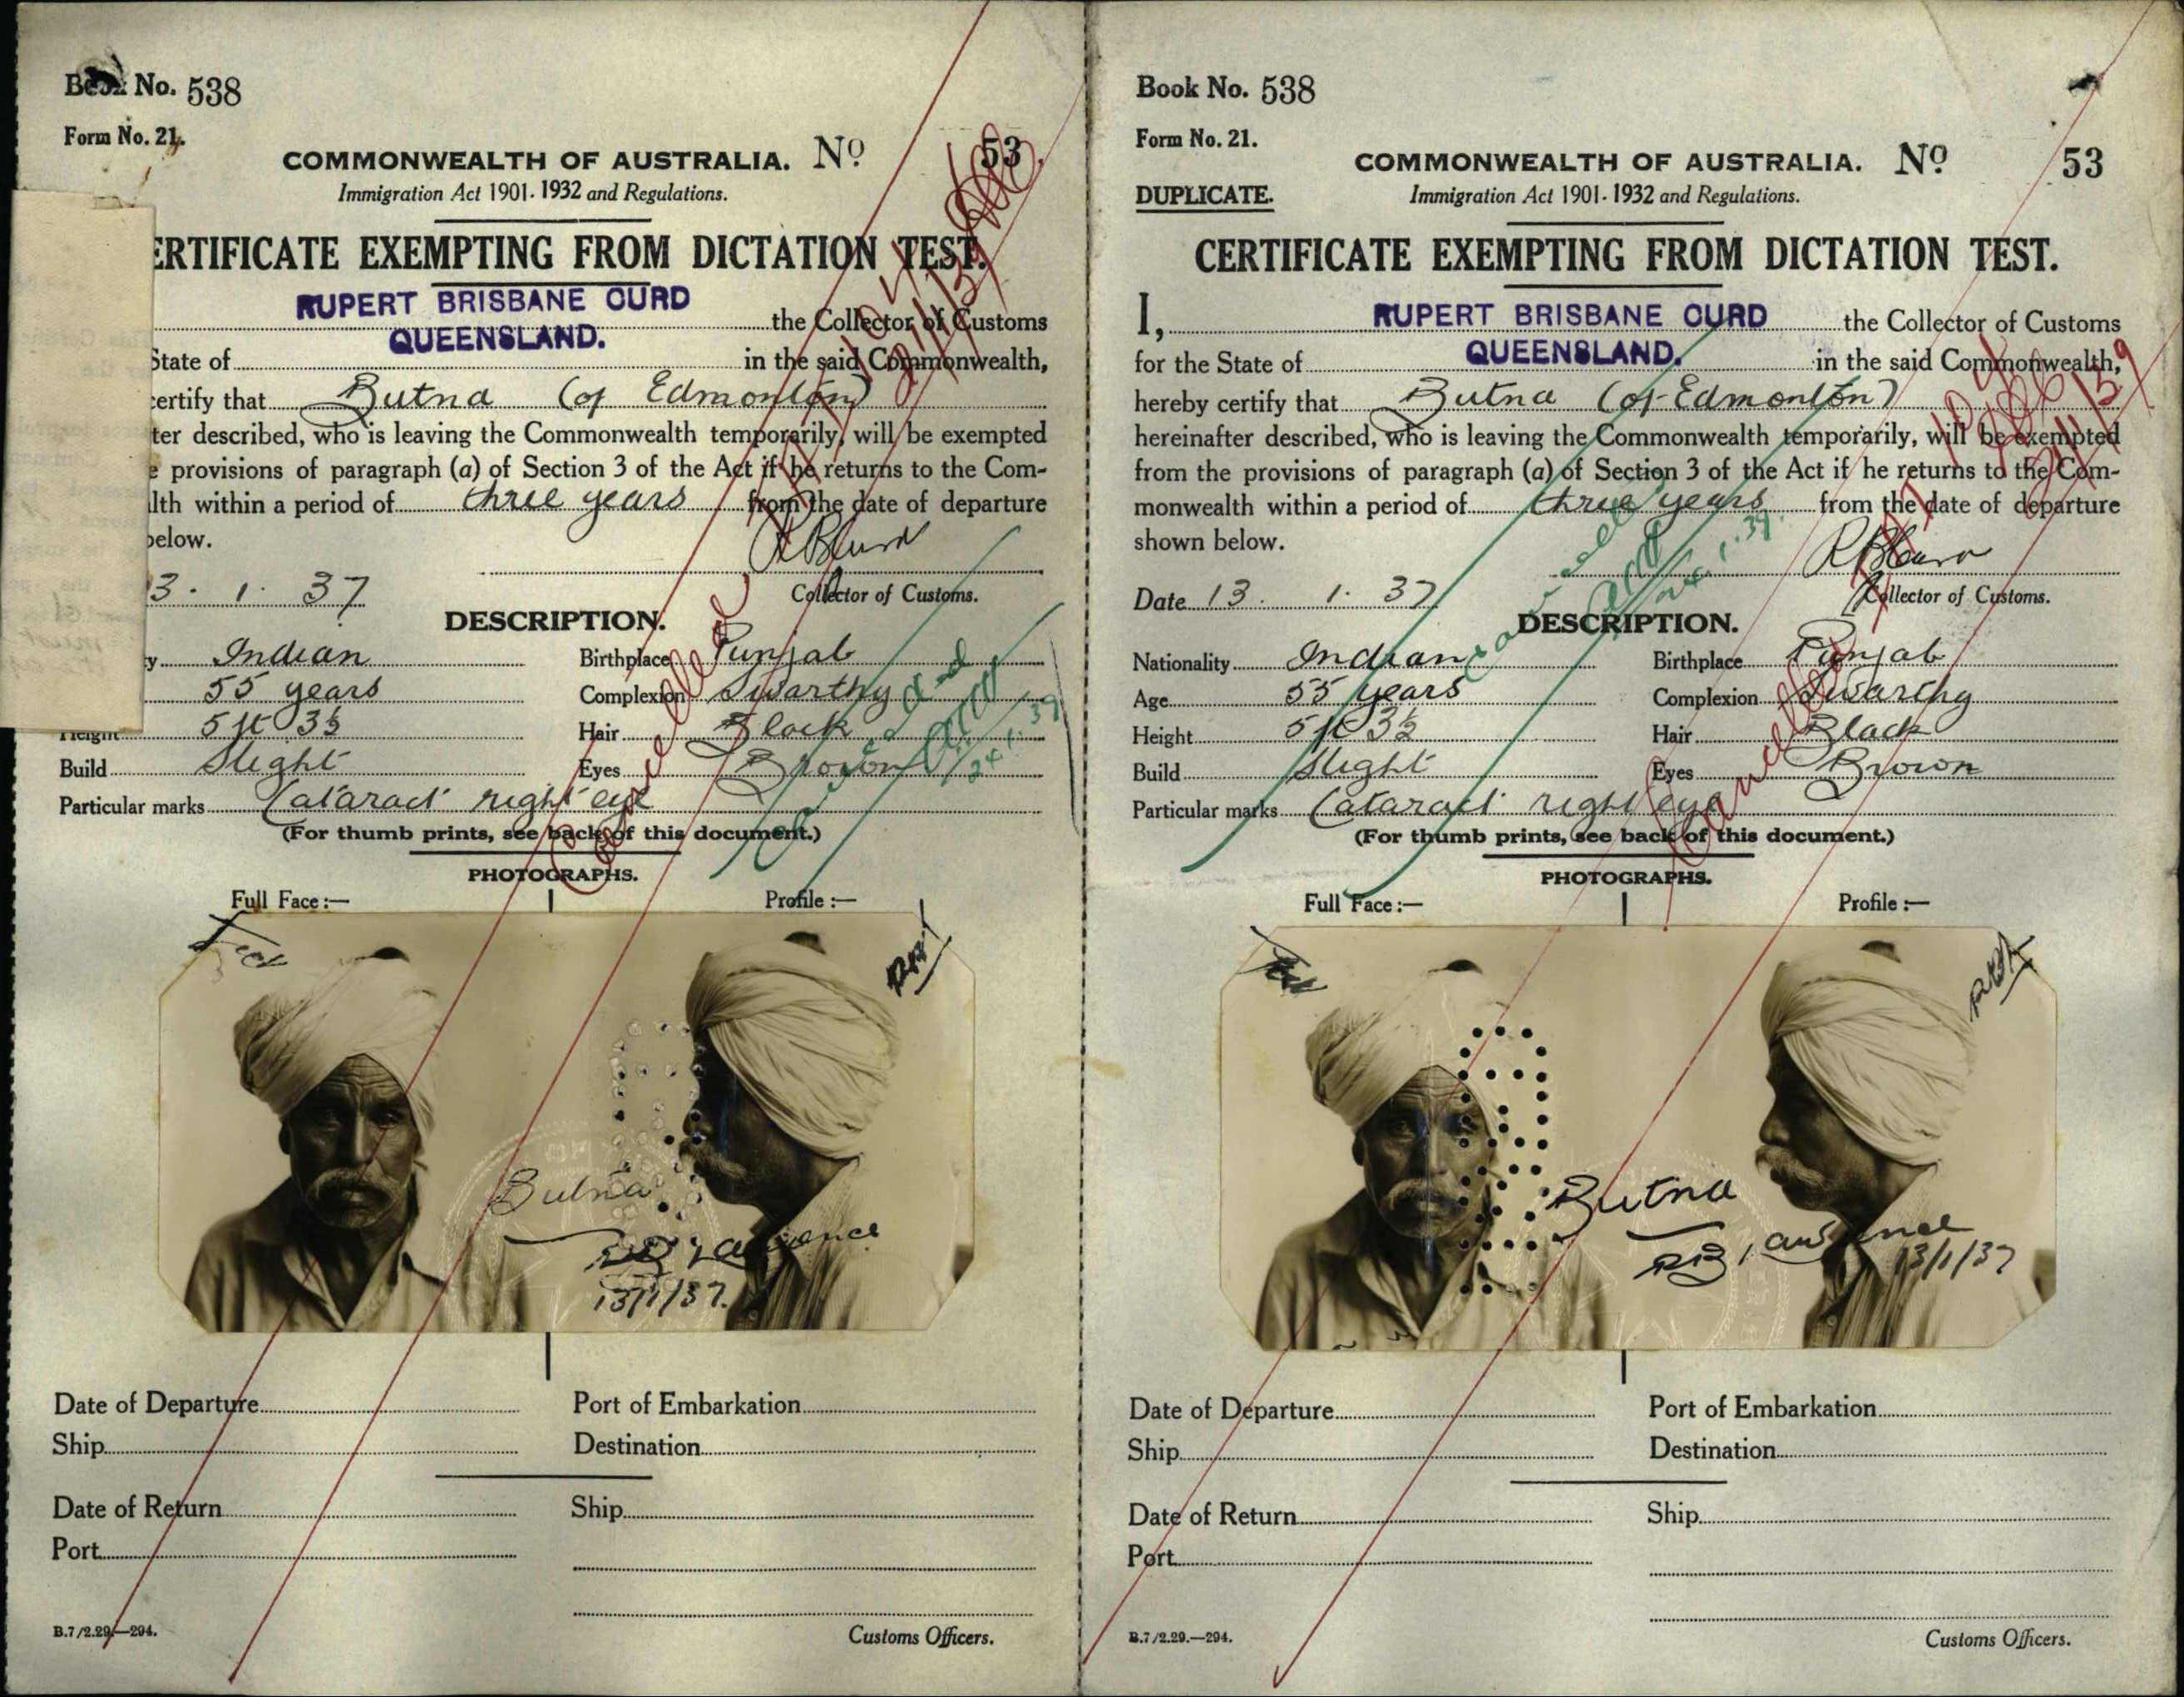 Book No. 538
Form No. 21.
COMMONWEALTH OF AUSTRALIA. No 53
Immigration Act 1901-1932 and Regulations.
ERTIFICATE EXEMPTING FROM DICTATION TEST.
RUPERT BRISBANE CURD
the Collector of Customs
State of QUEENSLAND. in the said Commonwealth,
certify that Butna (of Edmonton)
ter described, who is leaving the Commonwealth temporarily, will be exempted
e provisions of paragraph (a) of Section 3 of the Act if he returns to the Com-
lth within a period of three years from the date of departure
below.
3. 1. 37
Collector of Customs.
DESCRIPTION.
y Indian Birthplace Punjab
55 years Complexion Swarthy
Height 5 ft 3½ Hair Black
Build Slight Eyes Brown
Particular marks Cataract right eye
(For thumb prints, see back of this document.)
Cancelled
24.1.39
PHOTOGRAPHS.
Full Face:— Profile:—
Butna
13/1/37.
Date of Departure Port of Embarkation
Ship Destination
Date of Return Ship
Port
B.7/2.29.—294. Customs Officers.
Book No. 538
Form No. 21.
DUPLICATE.
COMMONWEALTH OF AUSTRALIA. No 53
Immigration Act 1901-1932 and Regulations.
CERTIFICATE EXEMPTING FROM DICTATION TEST.
I, RUPERT BRISBANE CURD the Collector of Customs
for the State of QUEENSLAND. in the said Commonwealth,
hereby certify that Butna (of Edmonton)
hereinafter described, who is leaving the Commonwealth temporarily, will be exempted
from the provisions of paragraph (a) of Section 3 of the Act if he returns to the Com-
monwealth within a period of three years from the date of departure
shown below.
Date 13. 1. 37
Collector of Customs.
DESCRIPTION.
Nationality Indian Birthplace Punjab
Age 55 years Complexion Swarthy
Height 5 ft 3½ Hair Black
Build Slight Eyes Brown
Particular marks Cataract right eye
(For thumb prints, see back of this document.)
Cancelled
24.1.39
PHOTOGRAPHS.
Full Face:— Profile:—
Butna
13/1/37
Date of Departure Port of Embarkation
Ship Destination
Date of Return Ship
Port
B.7/2.29.—294. Customs Officers.